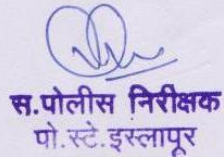 स.पोलीस निरीक्षक
पो.स्टे.इस्लापूर